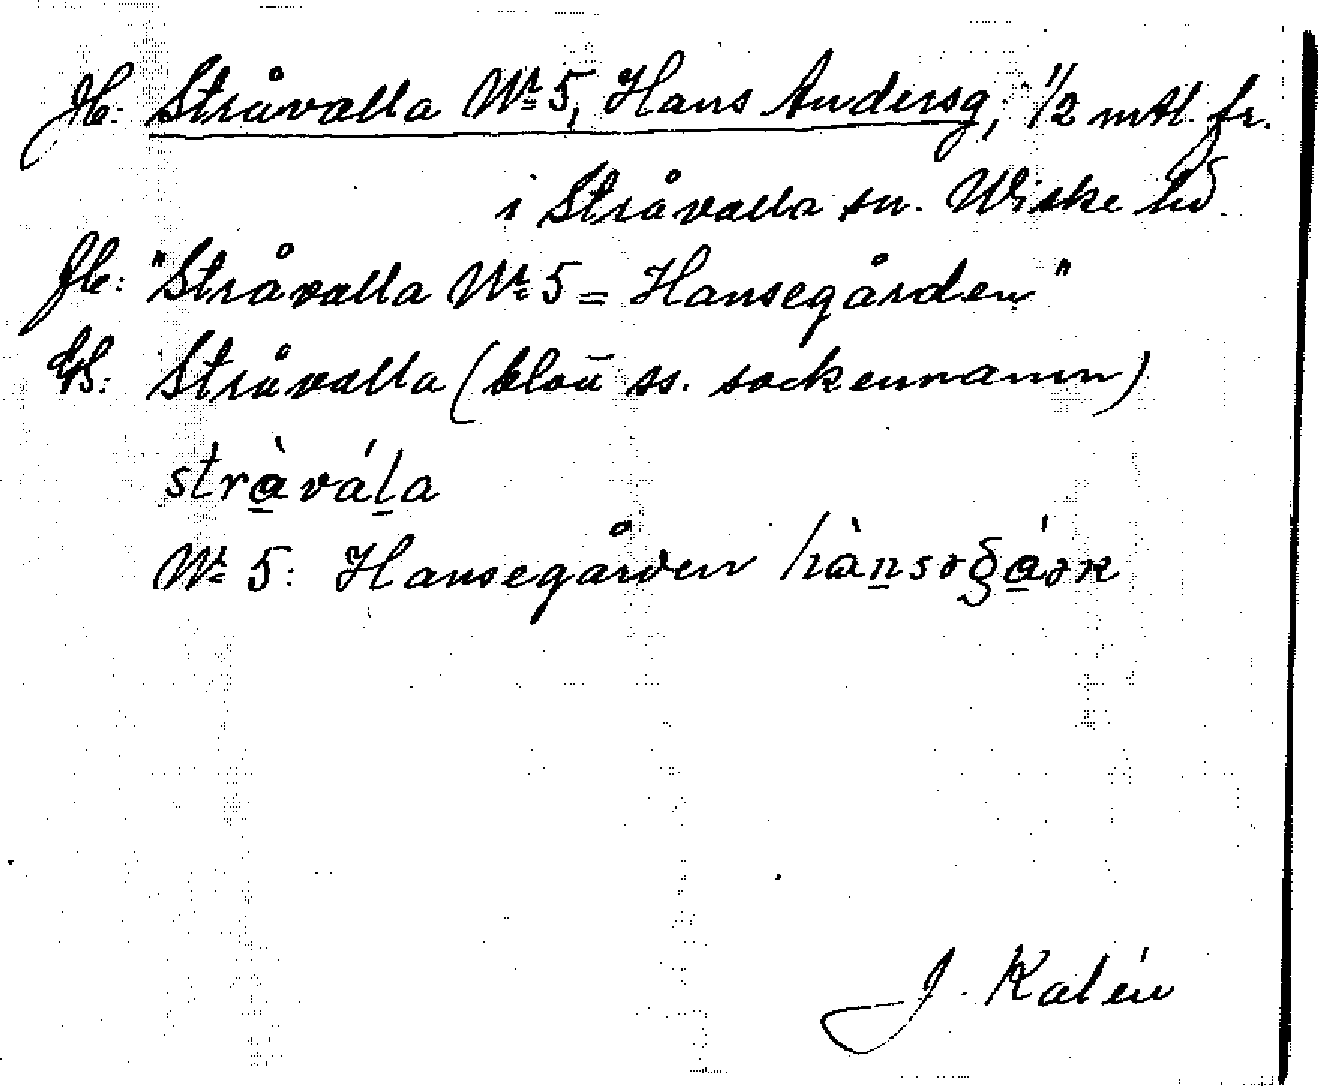 Jb: Stråvalla Nr 5, Hans Andersg, 1/2 mtl. fr.
i Stråvalla sn. Wiske hd.
Jb: "Stråvalla Nr 5 = Hansegården"
Stråvalla (blott ss. sockennamn)
stràvála
Nr 5: Hansegården
J. Kalén